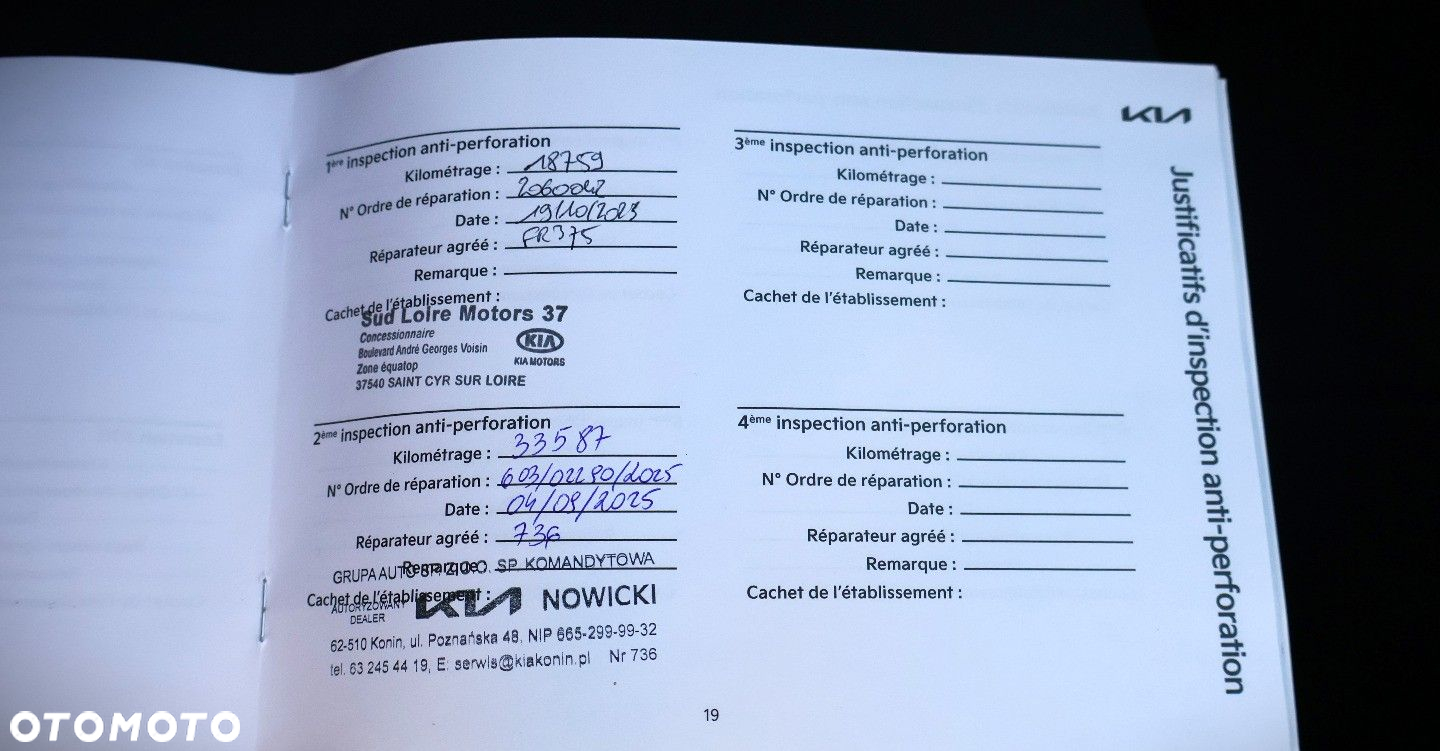 KIA
Justificatifs d'inspection anti-perforation
1ère inspection anti-perforation
Kilométrage : 18759
N° Ordre de réparation : 2060042
Date : 19/10/2023
Réparateur agréé : FR375
Remarque :
Cachet de l'établissement :
Sud Loire Motors 37
Concessionnaire
Boulevard André Georges Voisin
Zone équatop
37540 SAINT CYR SUR LOIRE
KIA
KIA MOTORS
2ème inspection anti-perforation
Kilométrage : 33587
N° Ordre de réparation : 603/02290/2025
Date : 04/09/2025
Réparateur agréé : 736
Remarque :
GRUPA AUTO SP. Z O.O. SP. KOMANDYTOWA
Cachet de l'établissement :
AUTORYZOWANY
DEALER
KIA NOWICKI
62-510 Konin, ul. Poznańska 48, NIP 665-299-99-32
tel. 63 245 44 19, E: serwis@kiakonin.pl Nr 736
3ème inspection anti-perforation
Kilométrage :
N° Ordre de réparation :
Date :
Réparateur agréé :
Remarque :
Cachet de l'établissement :
4ème inspection anti-perforation
Kilométrage :
N° Ordre de réparation :
Date :
Réparateur agréé :
Remarque :
Cachet de l'établissement :
19
OTOMOTO